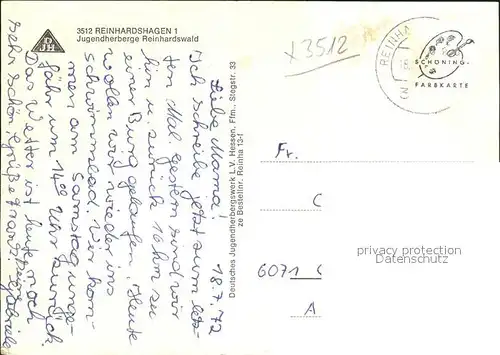 DJH
3512 REINHARDSHAGEN 1
Jugendherberge Reinhardswald
18.7.72
Liebe Mama!
Ich schreibe jetzt zum letz-
ten Mal. Gestern sind wir
hin u. zurück 16 km zu
einer Burg gelaufen. Heute
wollen wir wieder ins
Schwimmbad. Wir kom-
men am Samstag unge-
fähr um 14°° Uhr zurück.
Das Wetter ist heute noch
sehr schön. Grüße
Gabriele
Deutsches Jugendherbergswerk L.V. Hessen, Ffm., Stegstr. 33
ze Bestellnr. Reinha 13-f
x3512
REINHA
SCHÖNING-
FARBKARTE
Fr.
C
privacy protection
for Ansichtskarten-Lexikon
6071 C
A